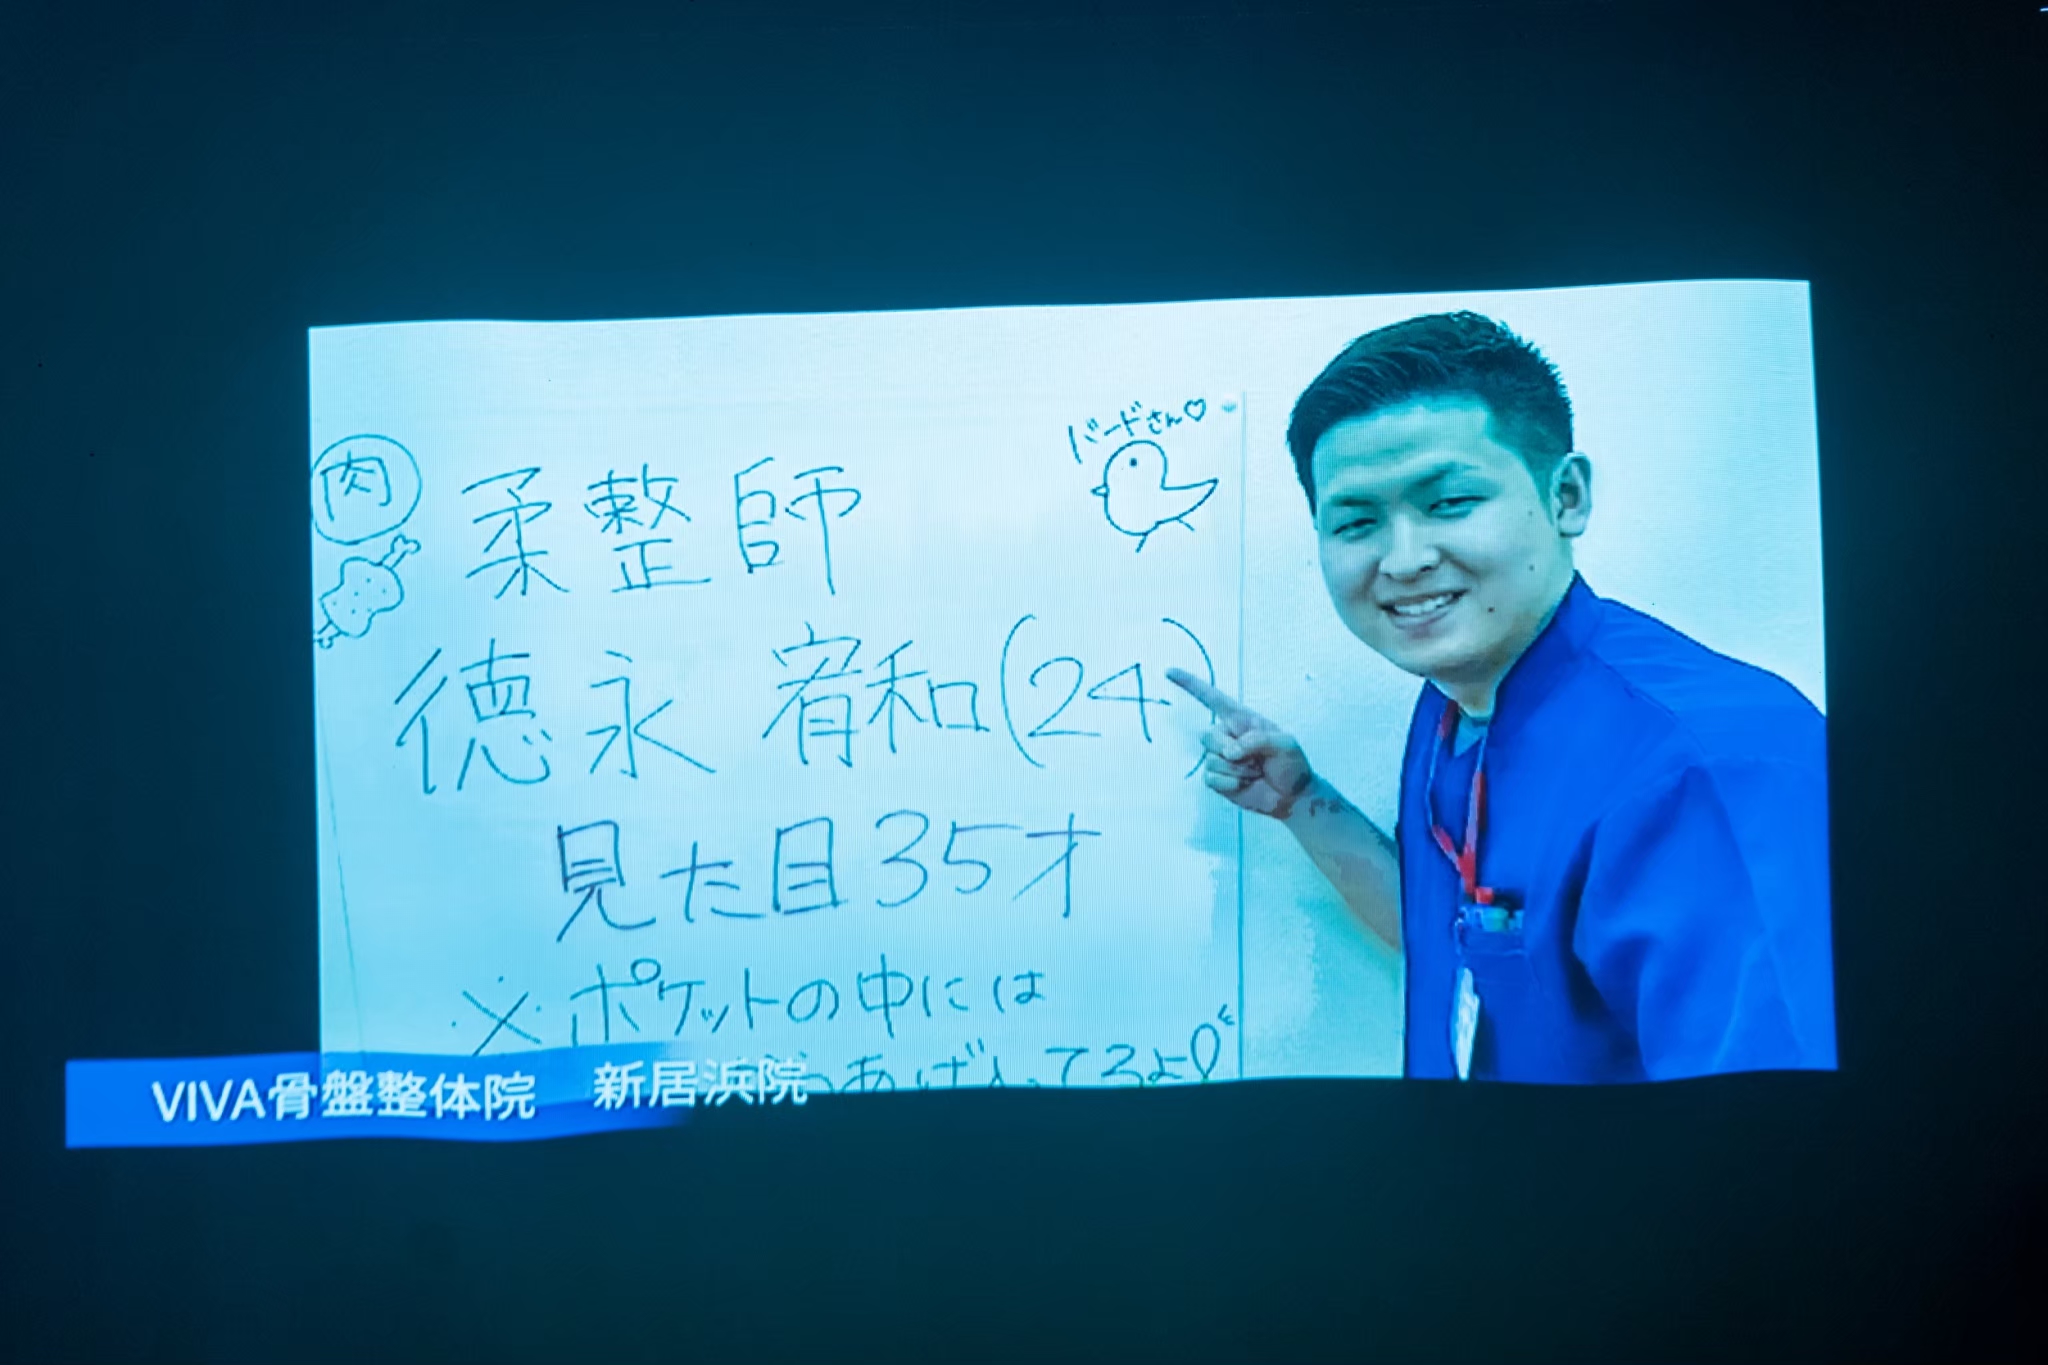 バードさん♡
肉
柔整師
徳永 宥和(24)
見た目35才
※ポケットの中には
てるよ
VIVA骨盤整体院 新居浜院